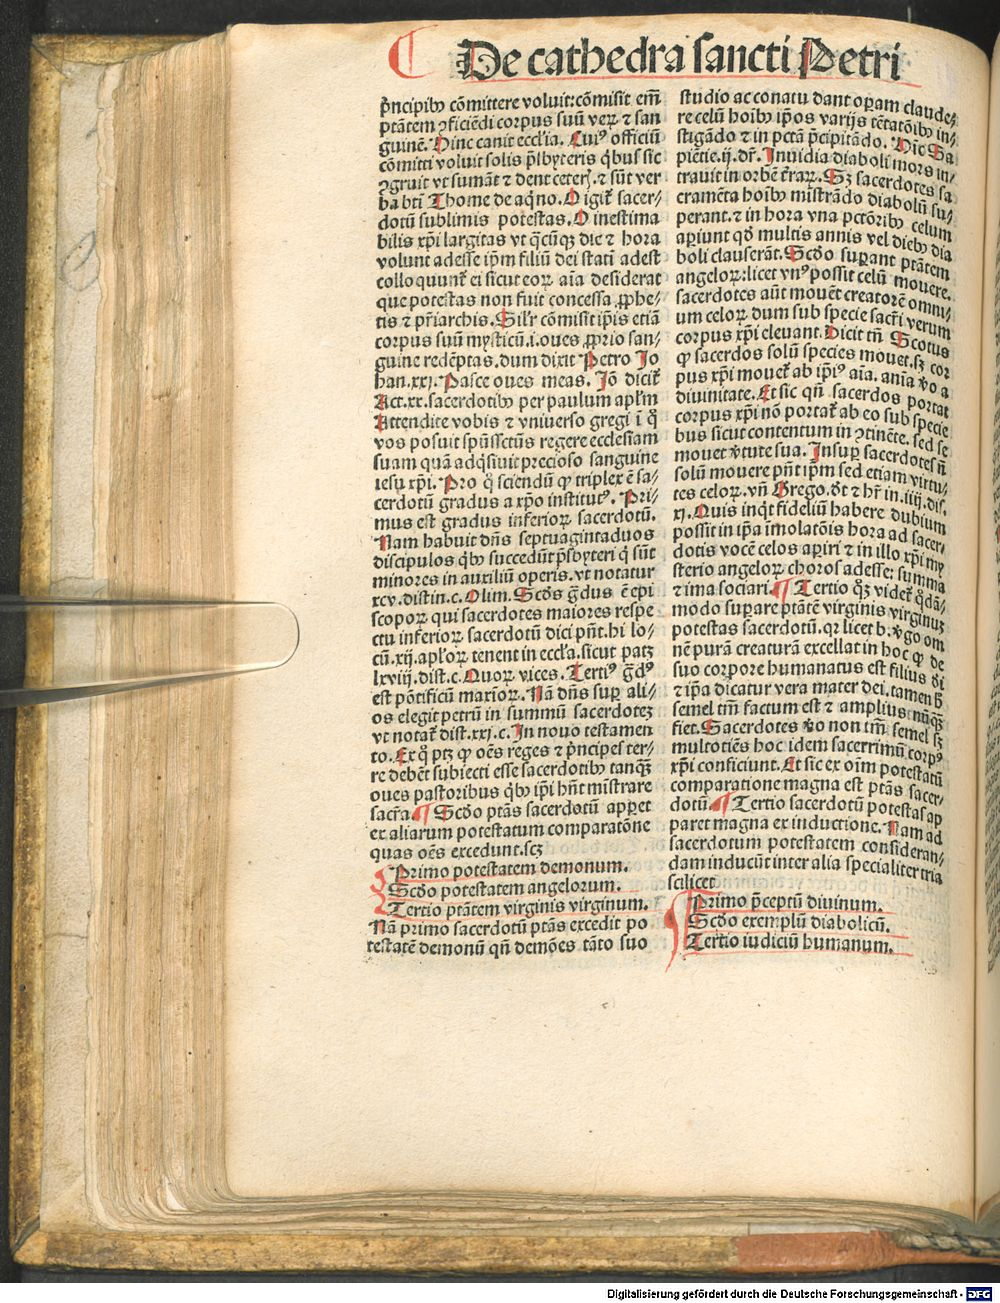 De cathedra sancti Petri
p̃ncipibꝰ cõmittere voluit:cõmisit em̃
ptãtem ꝯficiẽdi corpus suũ veꝝ ⁊ san
guinẽ. Hinc canit eccl'ia. Cuiꝰ officiũ
cõmitti voluit solis p̃sbyteris q̇bus sic
ꝯgruit vt sumãt ⁊ dent ceterꝭ.⁊ sũt ver
ba bti Thome de aq̇no. O igit̃ sacer-
dotũ sublimis potestas. O inestima
bilis xp̃i largitas vt q̃cũqꝫ die ⁊ hora
volunt adesse ip̃m filiũ dei stati adest
collo quunt̃ ei sicut eoꝝ aĩa desiderat
que potestas non fuit concessa ꝓphe-
tis ⁊ pr̃iarchis. Sil'r cõmisit ip̃is etiã
corpus suũ mysticũ.i.oues ꝓprio san-
guine redẽptas.dum dixit Petro Jo
han.xxj. Pasce oues meas. Jõ dicit̃
Act.xx.sacerdotibꝰ per paulum apl'm
Attendite vobis ⁊ vniuerso gregi ĩ q̊
vos posuit spũssctũs regere ecclesiam
suam quã adq̇siuit precioso sanguine
iesu xp̃i. Pro q̊ sciendũ ꝙ triplex ẽ sa-
cerdotũ gradus a xp̃o institutꝰ. Pri-
mus est gradus inferioꝝ sacerdotũ.
Nam habuit dñs septuagintaduos
discipulos q̇bꝰ succedũt p̃sbyteri q̇ sũt
minores in auxiliũ operis.vt notatur
xcv.distin.c.Olim. Scd̃s g̃dus ẽ ep̃i
scopoꝝ qui sacerdotes maiores respe
ctu inferioꝝ sacerdotũ dici pñt.hi lo-
cũ.xij.apl'oꝝ tenent in eccl'ia.sicut patꝫ
lxviij.dist.c. Quoꝝ vices. Tertiꝰ g̃dꝰ
est põtificũ maxĩoꝝ. Nã dñs suꝑ ali-
os elegit petrũ in summũ sacerdoteꝫ
vt notat̃ dist.xxj.c.In nouo testamen
to. Ex q̊ ptꝫ ꝙ oẽs reges ⁊ p̃ncipes ter-
re debẽt subiecti esse sacerdotibꝰ tanq̃ꝫ
oues pastoribus q̇bꝰ ip̃i hñt mĩstrare
sacr̃a. ¶ Scd̃o ptãs sacerdotũ apꝑet
ex aliarum potestatum comparatõne
quas oẽs excedunt.scꝫ
Primo potestatem demonum.
Scd̃o potestatem angelorum.
Tertio ptãtem virginis virginum.
Nã primo sacerdotũ ptãs excedit po
testatẽ demonũ qñ demões tãto suo
studio ac conatu dant oꝑam claude-
re celũ hoĩbꝰ ip̃os varijs tẽtatõibꝰ in-
stigãdo ⁊ in pctã p̃cipitãdo. Hĩc Sa
piẽtie.ij.dr̃. Inuidia diaboli mors in-
trauit in orbẽ t̃raꝝ. Sꝫ sacerdotes sa
cramẽta hoĩbꝰ mĩstrãdo diabolũ su-
perant.⁊ in hora vna pctõribꝰ celum
aꝑiunt qd̃ multis annis vel diebꝰ dia
boli clauserãt. Scd̃o suꝑant ptãtem
angeloꝝ:licet vnꝰ possit celũ mouere.
sacerdotes aũt mouẽt creatorẽ omni-
um celoꝝ dum sub specie sacr̃i verum
corpus xp̃i eleuant. Dicit tñ Scotus
ꝙ sacerdos solũ species mouet.sꝫ cor
pus xp̃i mouet̃ ab ip̃iꝰ aĩa. anĩa v̊o a
diuinitate. Et sic qñ sacerdos portat
corpus xp̃i nõ portat̃ ab eo sub specie
bus sicut contentum in ꝯtinẽte. sed se
mouet v̊tute sua. Insuꝑ sacerdotes ñ
solũ mouere pñt ip̃m sed etiam virtu-
tes celoꝝ.vñ Grego.d̃t ⁊ hr̃ in.iiij.dis.
xj. Quis inq̇t fideliũ habere dubium
possit in ip̃a ĩmolatõis hora ad sacer-
dotis vocẽ celos aꝑiri ⁊ in illo xp̃i my
sterio angeloꝝ choros adesse: summa
⁊ ima sociari. ¶ Tertio q̊ꝫ videt̃ q̊dã-
modo suꝑare ptãtẽ virginis virginuꝫ
potestas sacerdotũ.qꝛ licet b.v̊go om
nẽ purã creaturã excellat in hoc ꝙ de
suo corpore humanatus est filius d̃i
⁊ ip̃a dicatur vera mater dei.tamen h̃
semel tm̃ factum est ⁊ amplius nũq̃ꝫ
fiet. Sacerdotes v̊o non tm̃ semel sꝫ
multotiẽs hoc idem sacerrimũ corpꝰ
xp̃i conficiunt. Et sic ex oĩm potestatũ
comparatione magna est ptãs sacer-
dotũ. ¶ Tertio sacerdotũ potestas ap
paret magna ex inductione. Nam ad
sacerdotum potestatem consideran-
dam inducũt inter alia specialiter tria
scilicet
Primo p̃ceptũ diuinum.
Scd̃o exemplũ diabolicũ.
Tertio iudiciũ humanum.
Digitalisierung gefördert durch die Deutsche Forschungsgemeinschaft - DFG